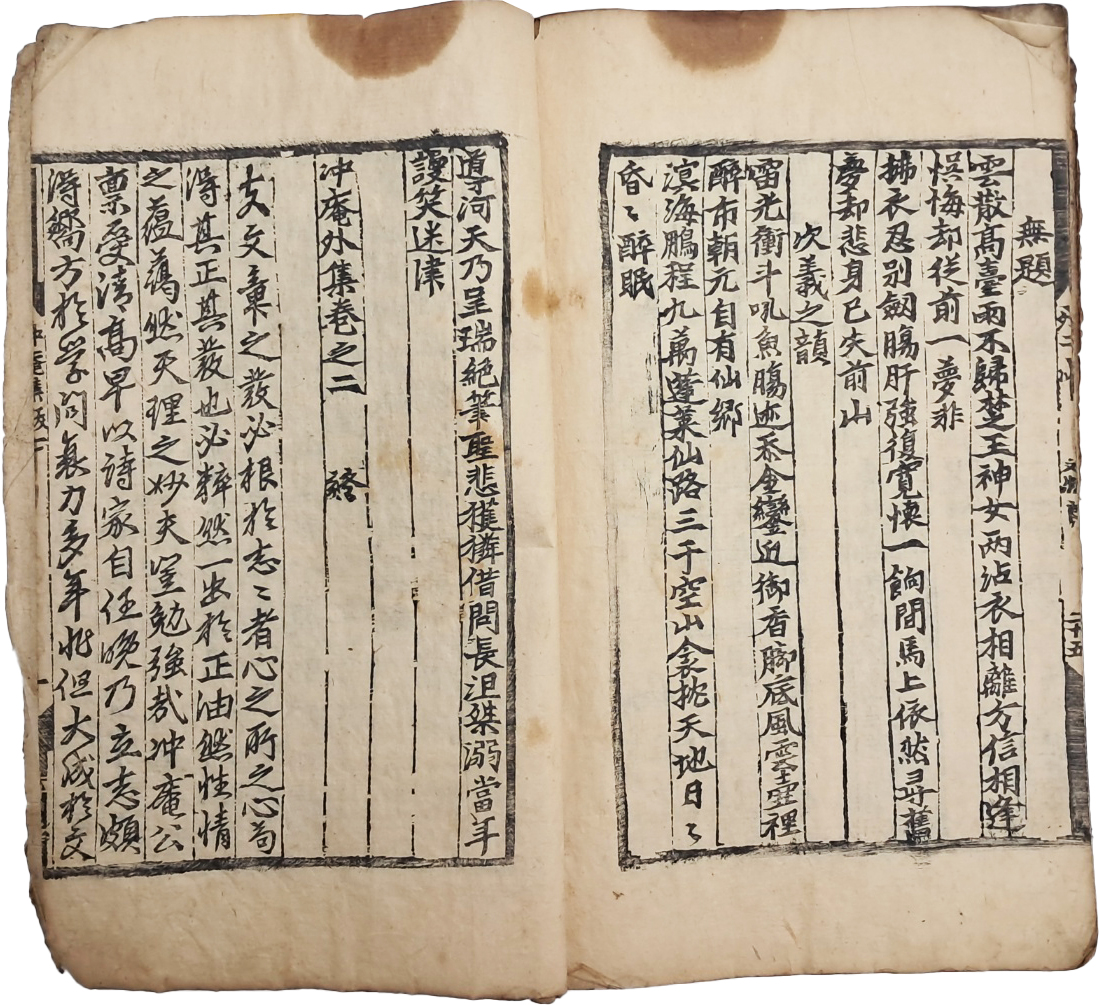 無題
雲散高臺雨不歸楚王神女兩沾衣相離方信相逢
悞悔却從前一夢非
拂衣忍別劒膓肝強復寬懷一餉間馬上依然尋舊
夢却悲身已失前山
次義之韻
雷光衝斗吼魚膓迹忝金鑾近御香脚底風雲壷裡
醉市朝元自有仙鄉
溟海鵬程九萬蓬萊仙路三千空山貪枕天地日〻
昏〻醉眠
導河天乃呈瑞絕筆聖悲獲獜借問長沮桀溺當年
謾笑迷津
冲庵外集卷之二 終
文章之發必根於志〻者心之所之心苟
得其正其發也必粹然一出於正油然性情
之蘊藹然天理之妙夫豈勉強哉冲庵公
禀受清高早以詩家自任晩乃立志頗
得嚮方於學問裒力多年非但大成於文